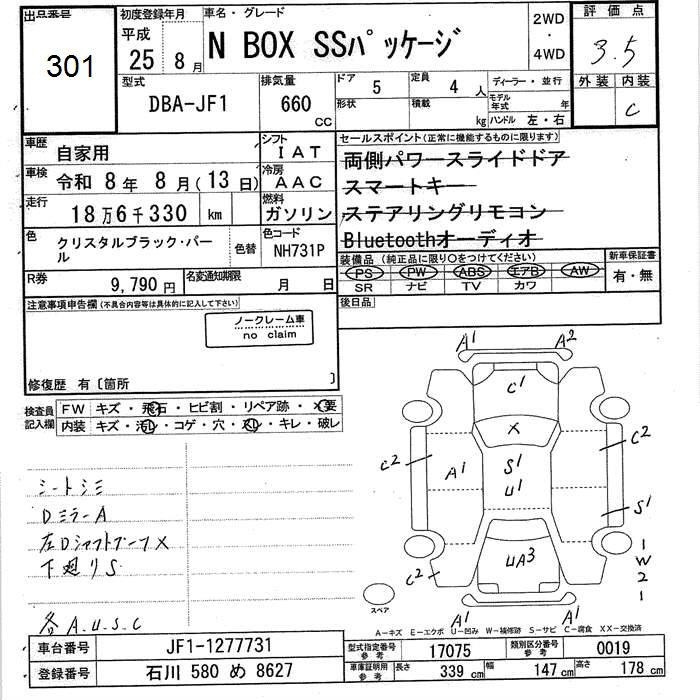 出品番号
301
初度登録年月
平成
25年8月
車名・グレード
N BOX SSパッケージ
2WD
・
4WD
評価点
3.5
外装 内装
C
型式
DBA-JF1
排気量
660
cc
ドア 5
定員 4人
形状
積載 kg
ディーラー・並行
モデル年式 年
ハンドル 左・右
車歴
自家用
シフト
IAT
車検
令和 8年 8月(13日)
冷房
AAC
走行
18万6千330 km
燃料
ガソリン
色
クリスタルブラック・パール
色替
色コード
NH731P
R券
9,790円
名変通知期限
月 日
セールスポイント(正常に機能するものに限ります)
両側パワースライドドア
スマートキー
ステアリングリモコン
Bluetoothオーディオ
装備品 (純正品に限り○をつけてください)
PS PW ABS エアB AW
SR ナビ TV カワ
新車保証書
有・無
後日品
注意事項申告欄(不具合内容等は具体的に記入して下さい)
ノークレーム車
no claim
修復歴 有〔箇所 〕
検査員
記入欄
FW キズ・飛石・ヒビ割・リペア跡・X要
内装 キズ・汚レ・コゲ・穴・スレ・キレ・破レ
シートシミ
Dミラー A
左Dシャフトブーツ X
下廻り S
各 A.U.S.C
A1 A2
C1
X
C2 C2
A1
S1
U1
S1
UA3
C2
1
W
2
1
A1 A1
スペア
A−キズ E−エクボ U−凹み W−補修跡 S−サビ C−腐食 XX−交換済
車台番号 JF1-1277731
登録番号 石川 580 め 8627
型式指定番号
参考
17075
類別区分番号
参考
0019
車庫証明用
参考
長さ 339 cm 幅 147 cm 高さ 178 cm